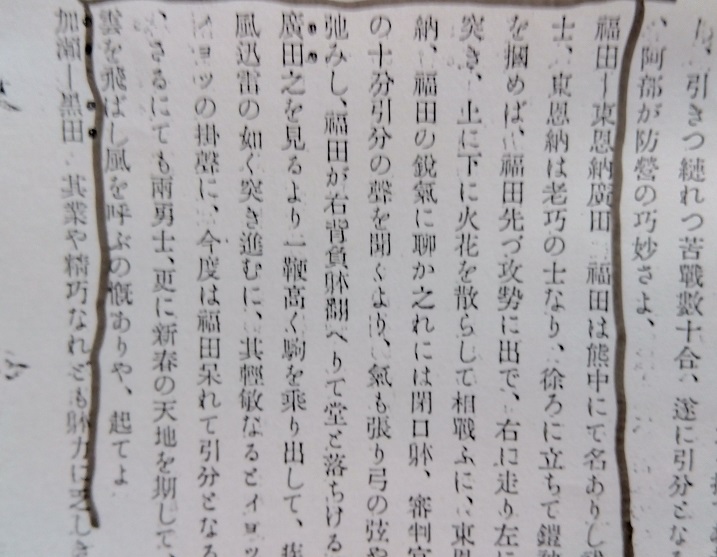 引きつ縺れつ苦戰數十合、遂に引分とな
、阿部が防營の巧妙さよ、
福田―東恩納廣田 福田は熊中にて名ありし
士、東恩納は老巧の士なり、徐ろに立ちて鎧
を摑めば、福田先づ攻勢に出で、右に走り左に
突き、上に下に火花を散らして相戰ふに、東恩
納、福田の鋭氣に聊か之れには閉口躰、審判官
の十分引分の聲を聞くより、氣も張り弓の弦や
弛みし、福田が右背負躰飜へりて堂と落ちける
廣田之を見るより一鞭高く駒を乘り出して、疾
風迅雷の如く突き進むに、其輕敏なるとイヨッ
イヨッの掛聲に、今度は福田呆れて引分となる
、さるにても兩勇士、更に新春の天地を期して、
雲を飛ばし風を呼ぶの慨ありや、起てよ
加瀬―黒田 其業や精巧なれども躰力に乏しき